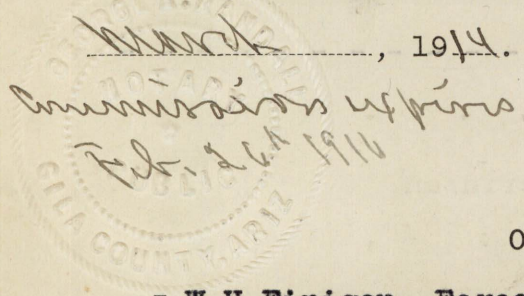 March, 1914.
Commission expires
Feb. 26th 1916
NOTARY
GILA COUNTY, ARIZ
O
W H Finigan